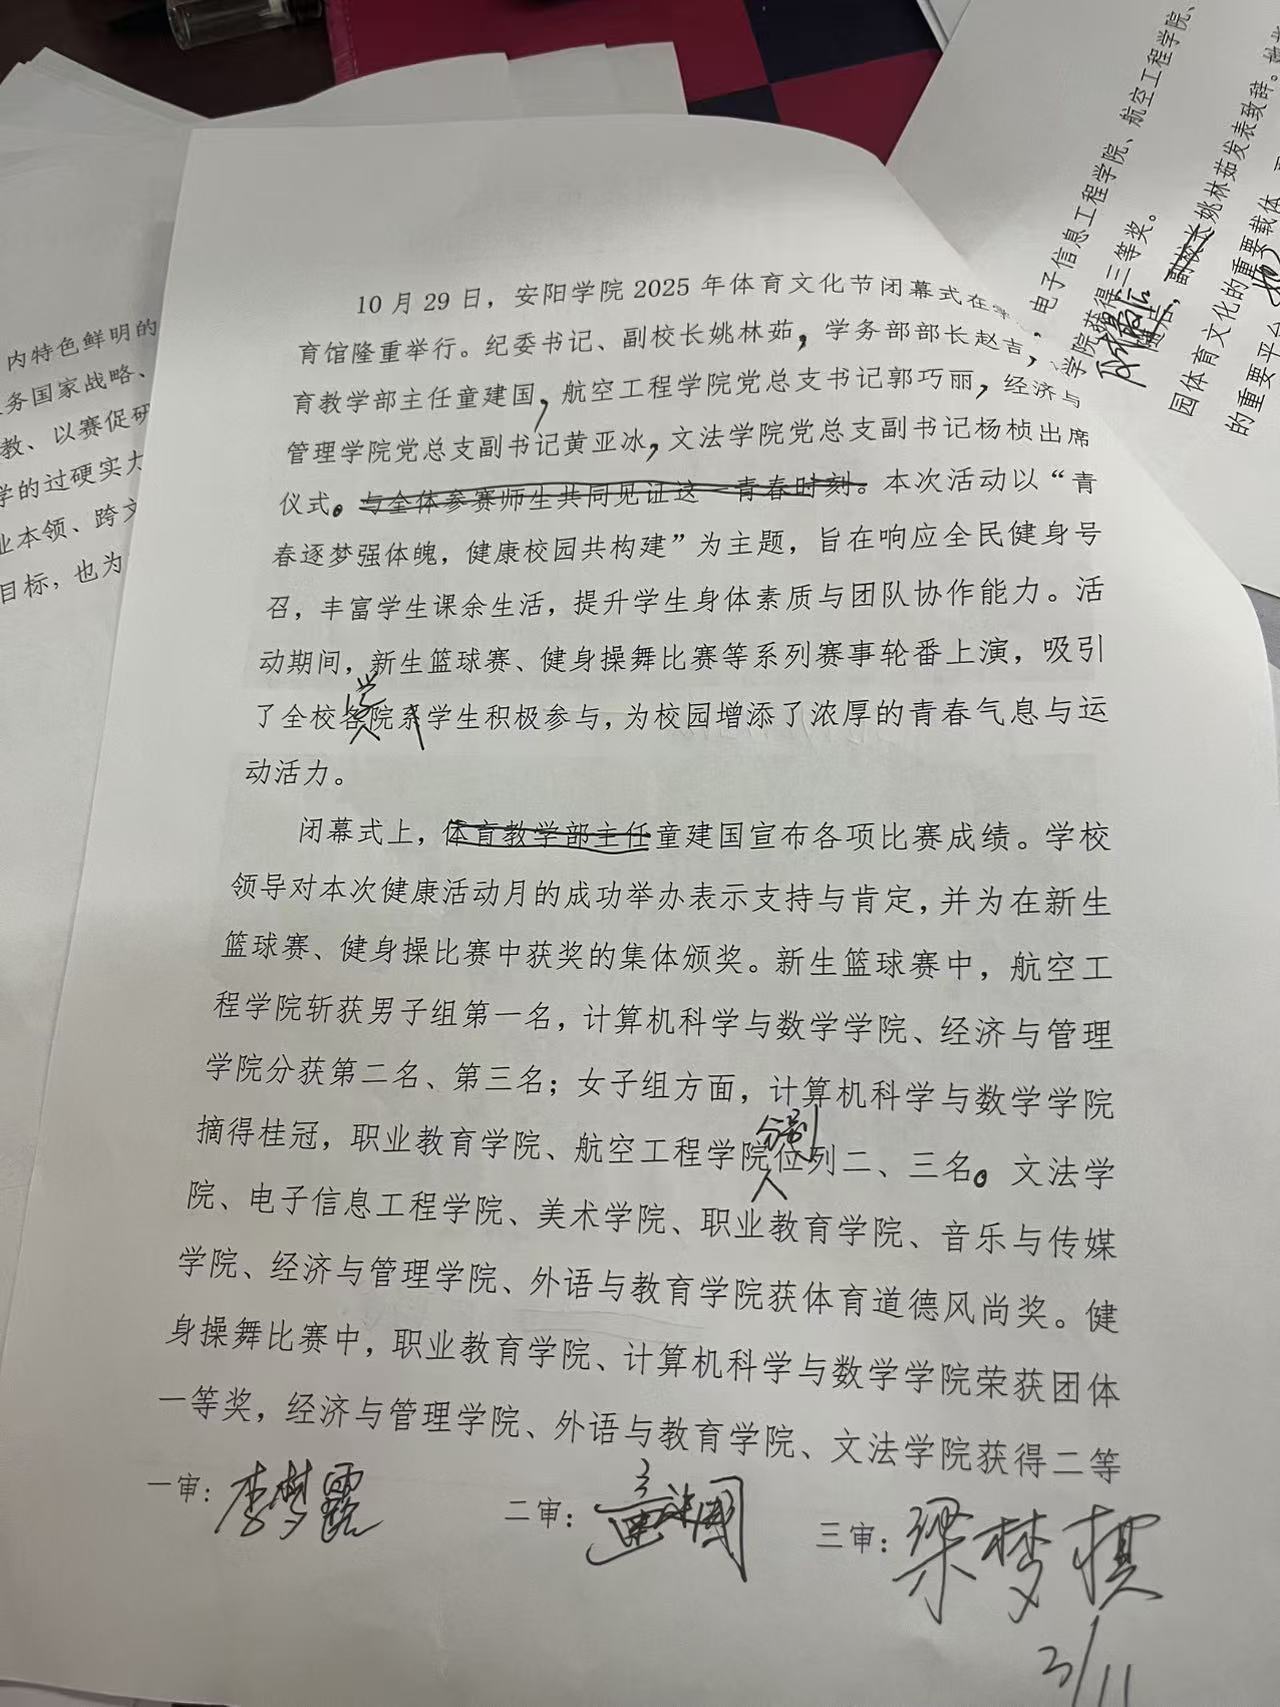 10月29日，安阳学院2025年体育文化节闭幕式在
育馆隆重举行。纪委书记、副校长姚林茹，学务部部长赵吉，
育教学部主任童建国，航空工程学院党总支书记郭巧丽，经济与
管理学院党总支副书记黄亚冰，文法学院党总支副书记杨桢出席
仪式。与全体参赛师生共同见证这一青春时刻。本次活动以“青
春逐梦强体魄，健康校园共构建”为主题，旨在响应全民健身号
召，丰富学生课余生活，提升学生身体素质与团队协作能力。活
动期间，新生篮球赛、健身操舞比赛等系列赛事轮番上演，吸引
学
了全校各院系学生积极参与，为校园增添了浓厚的青春气息与运
动活力。
闭幕式上，体育教学部主任童建国宣布各项比赛成绩。学校
领导对本次健康活动月的成功举办表示支持与肯定，并为在新生
篮球赛、健身操比赛中获奖的集体颁奖。新生篮球赛中，航空工
程学院斩获男子组第一名，计算机科学与数学学院、经济与管理
学院分获第二名、第三名；女子组方面，计算机科学与数学学院
分别
摘得桂冠，职业教育学院、航空工程学院位列二、三名。文法学
院、电子信息工程学院、美术学院、职业教育学院、音乐与传媒
学院、经济与管理学院、外语与教育学院获体育道德风尚奖。健
身操舞比赛中，职业教育学院、计算机科学与数学学院荣获团体
一等奖，经济与管理学院、外语与教育学院、文法学院获得二等
一审：李梦露
二审：童建国
三审：梁梦楔
3/11
内特色鲜明的
务国家战略、
教、以赛促研
学的过硬实力
业本领、跨文
目标，也为
电子信息工程学院、航空工程学院、
学院获得三等奖。
副校长姚林茹发表致辞。
园体育文化的重要载体
的重要平台